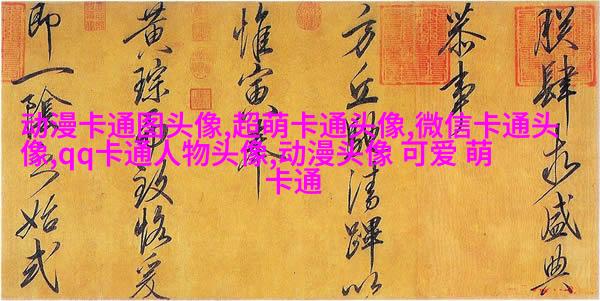 朕肆求盛典
恭事
方丘臨清蹕以
惟寅奉
黃琮而致恪爰
即一陰之始式
动漫卡通图头像,超萌卡通头像,微信卡通头
像,qq卡通人物头像,动漫头像 可爱 萌
卡通